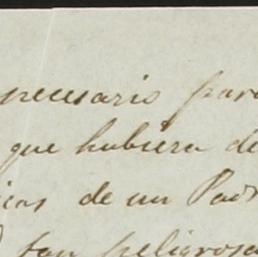 necesario para
que hubiera de
icas de un Pad
tan peligrosa